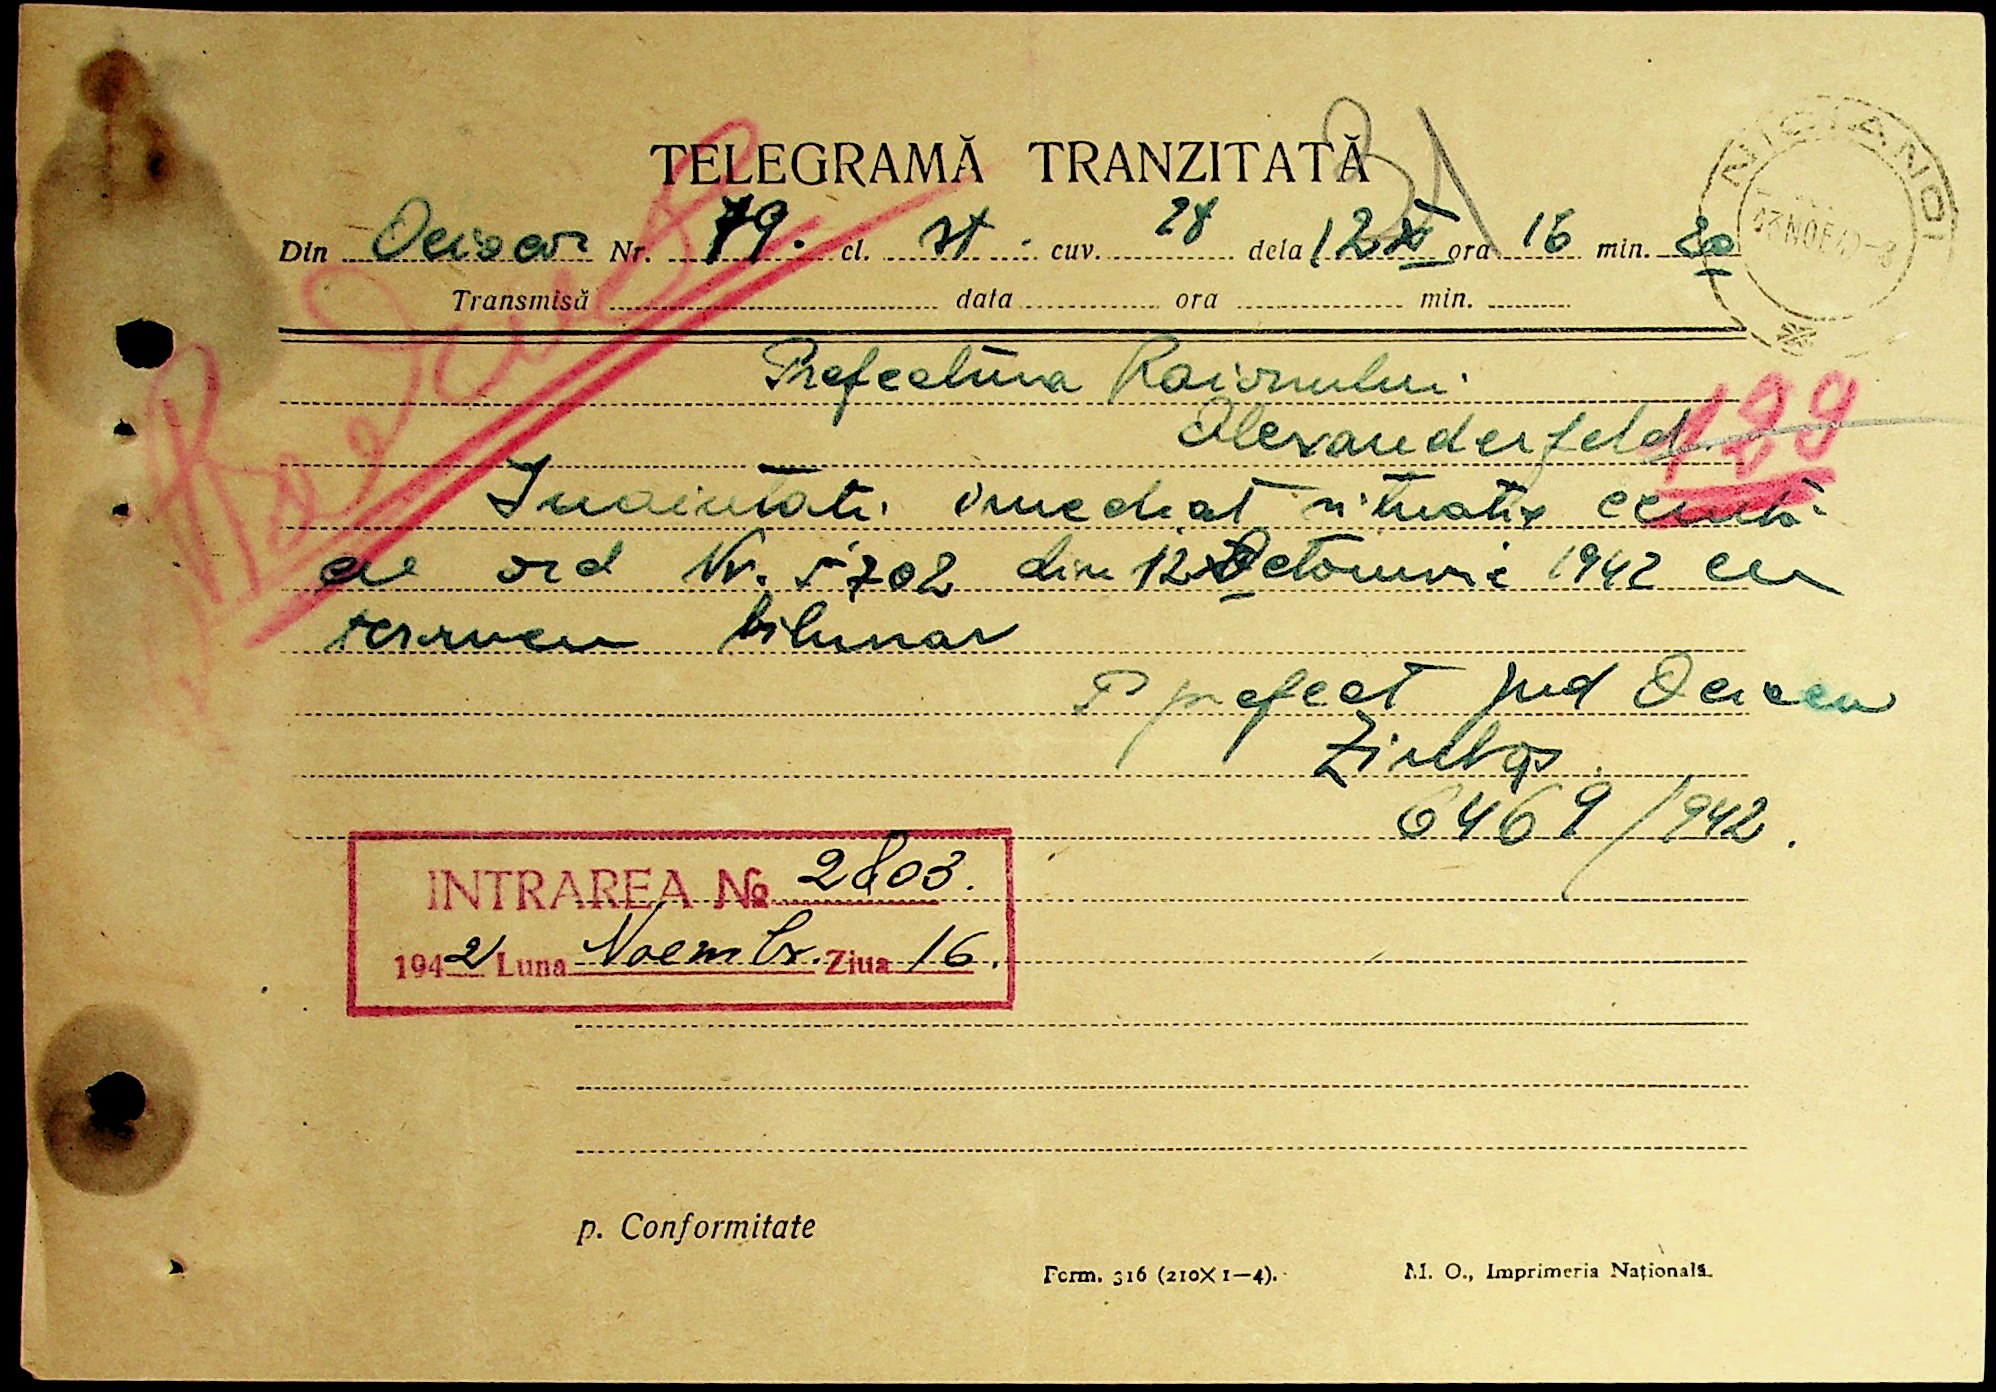 31
TELEGRAMĂ TRANZITATĂ
Din Oceacov Nr. 79. cl. st. cuv. 28 dela 12 XI ora 16 min. 20
Transmisă data ora min.
Prefectura Raionului
Alexanderfeld
129
Inaintati imediat situatia ceruta
cu ord Nr. 5702 din 12 Octomvrie 1942 cu
termen bilunar
P prefect jud Oceacov
6469/942.
INTRAREA No 2803.
1942 Luna Noembr. Ziua 16.
p. Conformitate
Form. 316 (210X1—4).
M. O., Imprimeria Națională.